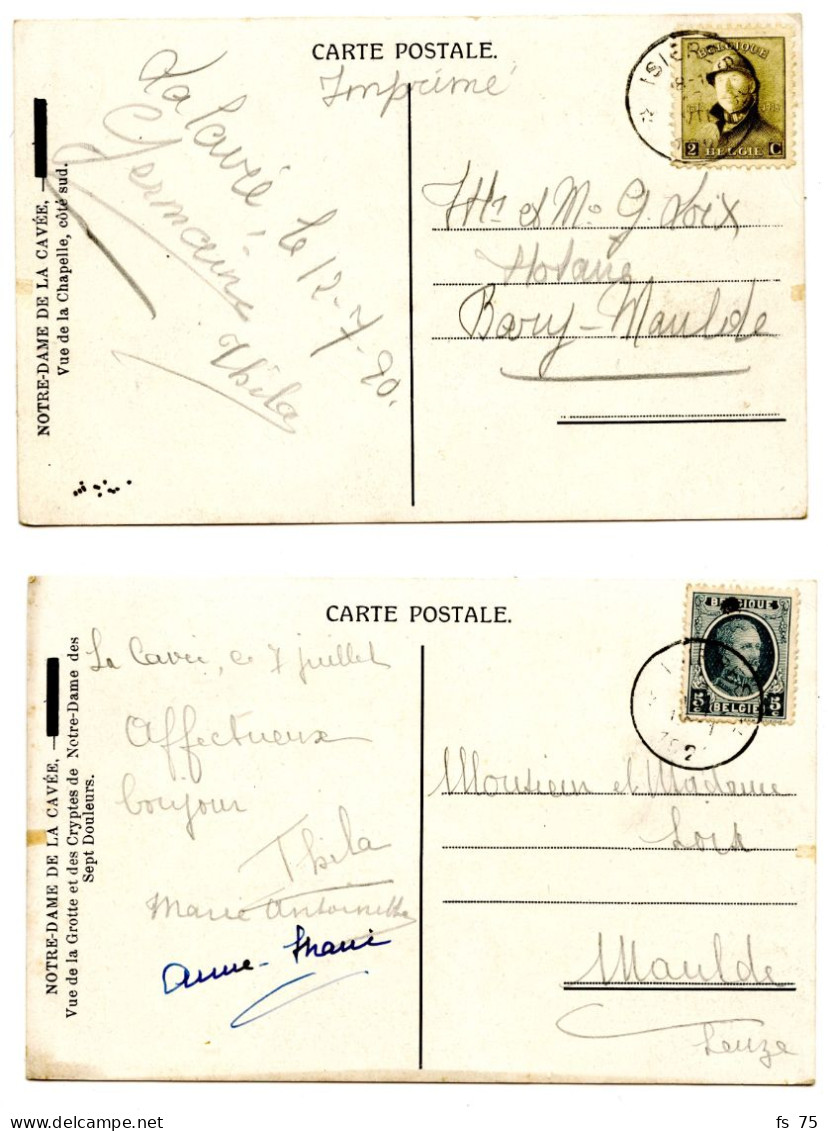 CARTE POSTALE.
Imprimé
ISIER
BELGIQUE
2 C
BELGIE
La Cavée, le 12-7-20.
Germaine
Thila
NOTRE-DAME DE LA CAVÉE,
Vue de la Chapelle, côté sud.
Mr et Me G. Loix
Notaire
Barry-Maulde
CARTE POSTALE.
BELGIQUE
5 5
BELGIE
La Cavée, ce 7 juillet
Affectueux
bonjour
Thila
Marie Antoinette
Anne-Marie
NOTRE-DAME DE LA CAVÉE,
Vue de la Grotte et des Cryptes de Notre-Dame des
Sept Douleurs.
Monsieur et Madame
Loix
Maulde
Leuze
fs 75